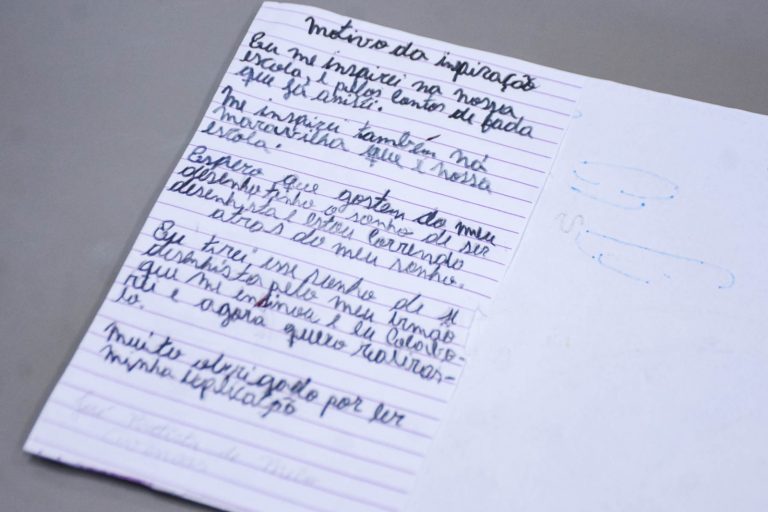 Motivo da inspiração
Eu me inspirei na nossa
escola, e pelos contos de fada
que já assisti.
Me inspirei também na
maravilha que é nossa
escola.
Espero que gostem do meu
desenho tinho o sonho de ser
desenhista e estou correndo
atras do meu sonho.
Eu tirei esse sonho de
desenhista pelo meu irmão
que me ensinou e eu
e agora quero
lo.
Muito obrigado por ler
minha